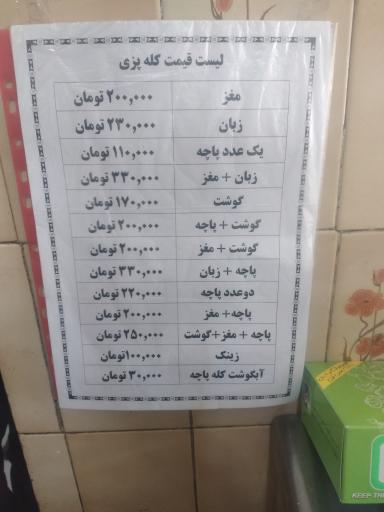 لیست قیمت کله پزی
مغز ۲۰۰,۰۰۰ تومان
زبان ۲۳۰,۰۰۰ تومان
یک عدد پاچه ۱۱۰,۰۰۰ تومان
زبان + مغز ۳۳۰,۰۰۰ تومان
گوشت ۱۷۰,۰۰۰ تومان
گوشت + پاچه ۲۰۰,۰۰۰ تومان
گوشت + مغز ۲۰۰,۰۰۰ تومان
پاچه + زبان ۳۳۰,۰۰۰ تومان
دوعدد پاچه ۲۲۰,۰۰۰ تومان
پاچه+ مغز ۲۰۰,۰۰۰ تومان
پاچه + مغز+گوشت ۲۵۰,۰۰۰ تومان
زینک ۱۰۰,۰۰۰تومان
آبگوشت کله پاچه ۳۰,۰۰۰ تومان
KEEP